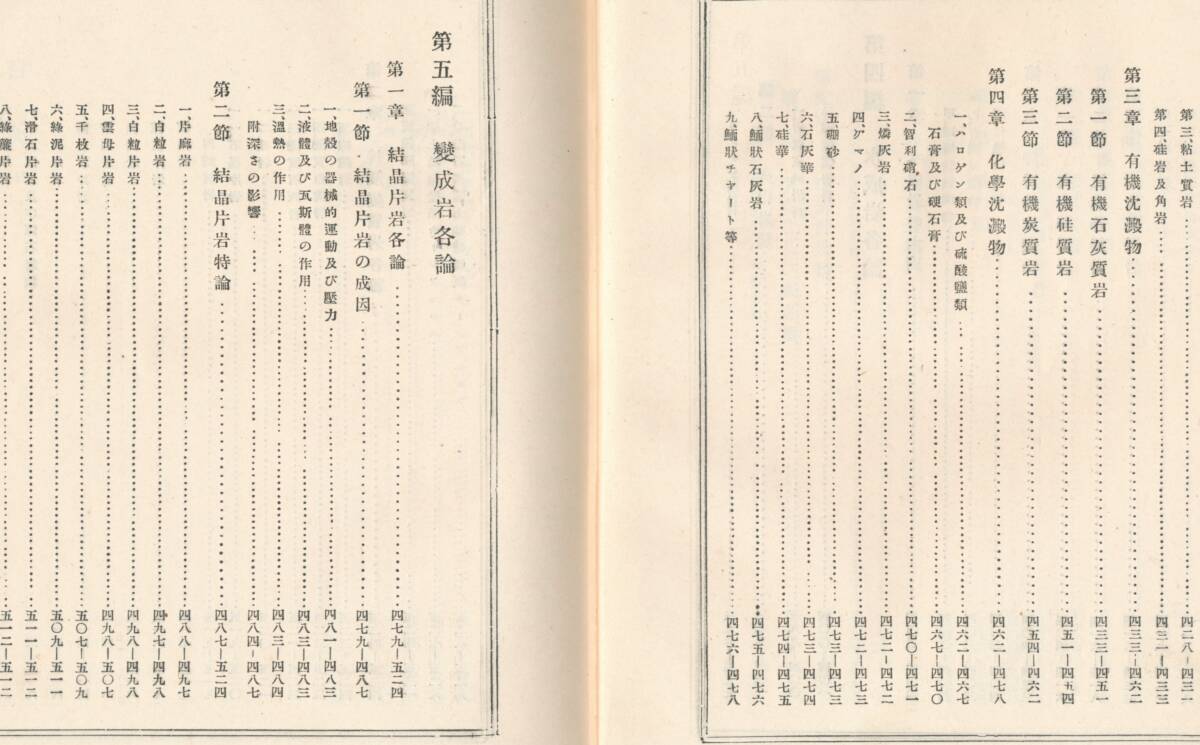 第三、粘土質岩……四二八—四三一
第四、硅岩及角岩……四三一—四三三
第三章　有機沈澱物……四三三—四六二
第一節　有機石灰質岩……四三三—四五一
第二節　有機硅質岩……四五一—四五四
第三節　有機炭質岩……四五四—四六二
第四章　化學沈澱物……四六二—四七八
一、ハロゲン類及び硫酸鹽類……四六二—四六七
石膏及び硬石膏……四六七—四七〇
二、智利硝石……四七〇—四七一
三、燐灰岩……四七二—四七二
四、グマノ……四七二—四七三
五、硼砂……四七三—四七三
六、石灰華……四七三—四七四
七、硅華……四七四—四七五
八、鰤狀石灰岩……四七五—四七六
九、鰤狀チヤート等……四七六—四七八
第五編　變成岩各論
第一章　結晶片岩各論……四七九—五二四
第一節　結晶片岩の成因……四七九—四八七
一、地殼の器械的運動及び壓力……四八一—四八三
二、液體及び瓦斯體の作用……四八三—四八三
三、溫熱の作用……四八三—四八四
附深さの影響……四八四—四八七
第二節　結晶片岩特論……四八七—五二四
一、片麻岩……四八八—四九七
二、白粒岩……四九七—四九八
三、白粒片岩……四九八—四九八
四、雲母片岩……四九八—五〇七
五、千枚岩……五〇七—五〇九
六、綠泥片岩……五〇九—五一一
七、滑石片岩……五一一—五一二
八、綠簾片岩……五一二—五一二